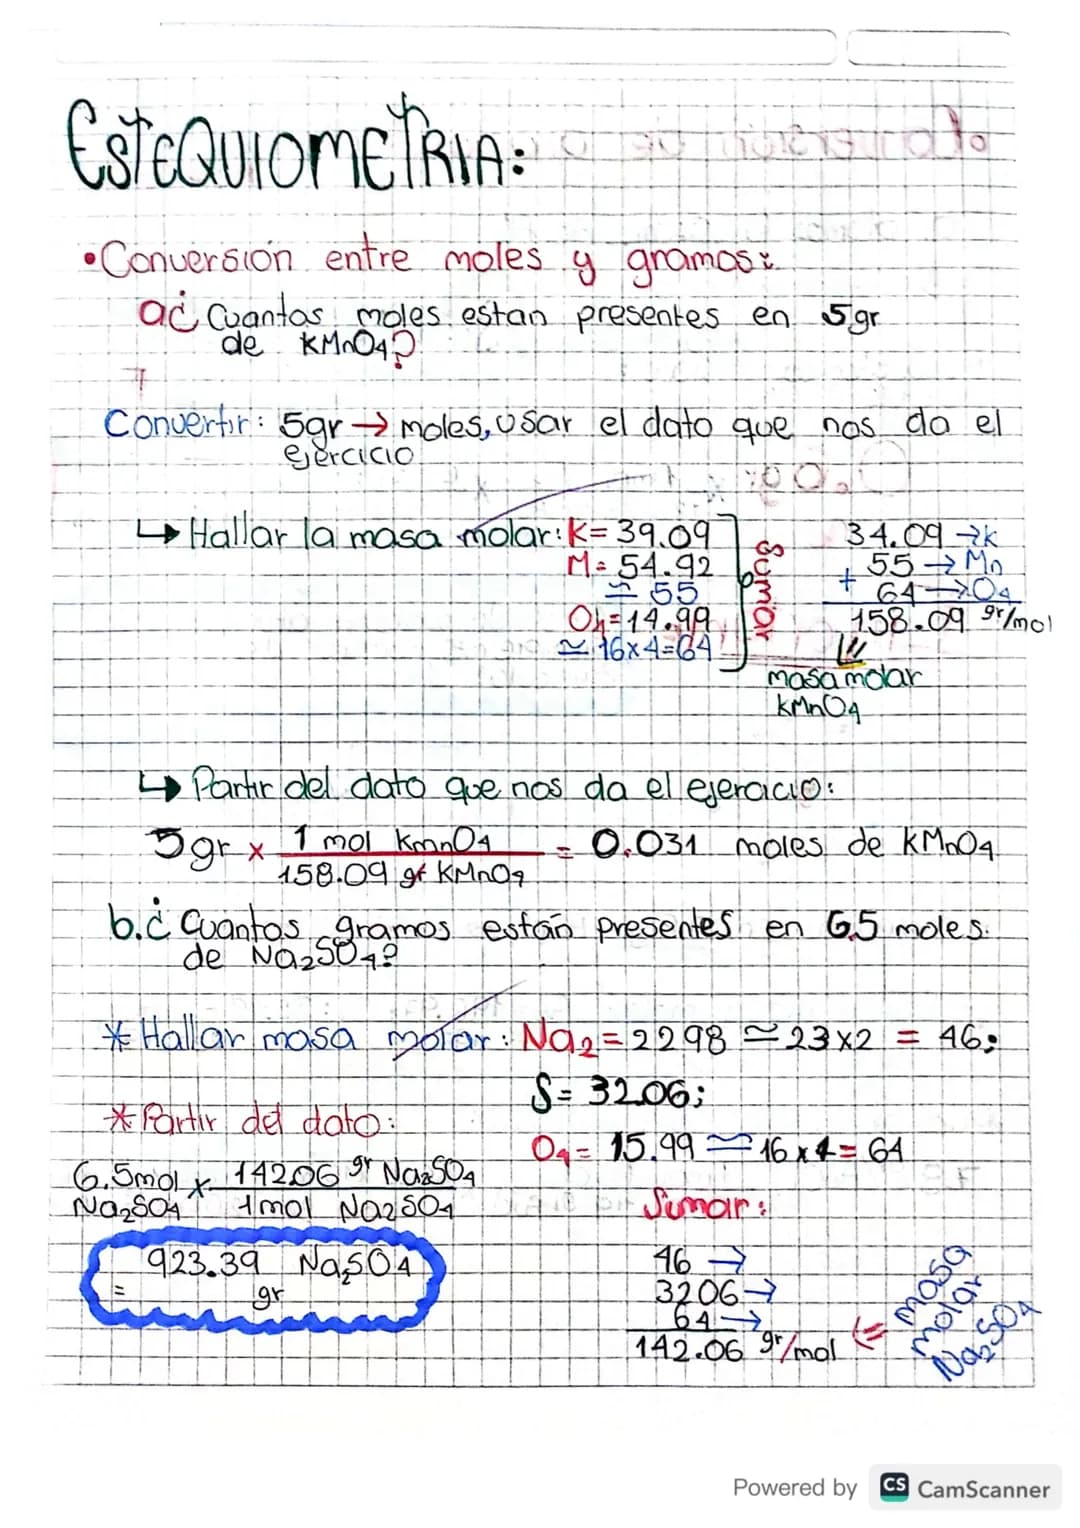 ESTEQUIOMETRIA:
• Conversión entre moles y gramos:
a¿ Cuantas moles estan presentes en 5gr
de KMnO4?
Convertir: 5gr → moles, usar el dato que nos da el
ejercicio
↳ Hallar la masa molar: K= 39.09
M= 54.92
≃ 55
O4= 14.99
≃ 16x4=64
Sumar
34.09 → K
55 → Mn
+ 64 → O4
158.09 gr/mol
masa molar
KMnO4
↳ Partir del dato que nos da el ejercicio:
5gr x 1 mol KmnO4 = 0.031 moles de KMnO4
158.09 gr KMnO4
b.¿ Cuantos gramos están presentes en 6.5 moles
de Na2SO4?
* Hallar masa molar: Na2= 2298 ≃ 23x2 = 46;
S= 32.06;
O4= 15.99 ≃ 16 x 4= 64
* Partir del dato:
6.5mol x 142.06 gr Na2SO4
Na2SO4 1mol Na2SO4
= 923.39 Na2SO4
gr
Sumar:
46 →
3206 →
64 →
142.06 gr/mol ⇐ masa
molar
Na2SO4
Powered by CS CamScanner